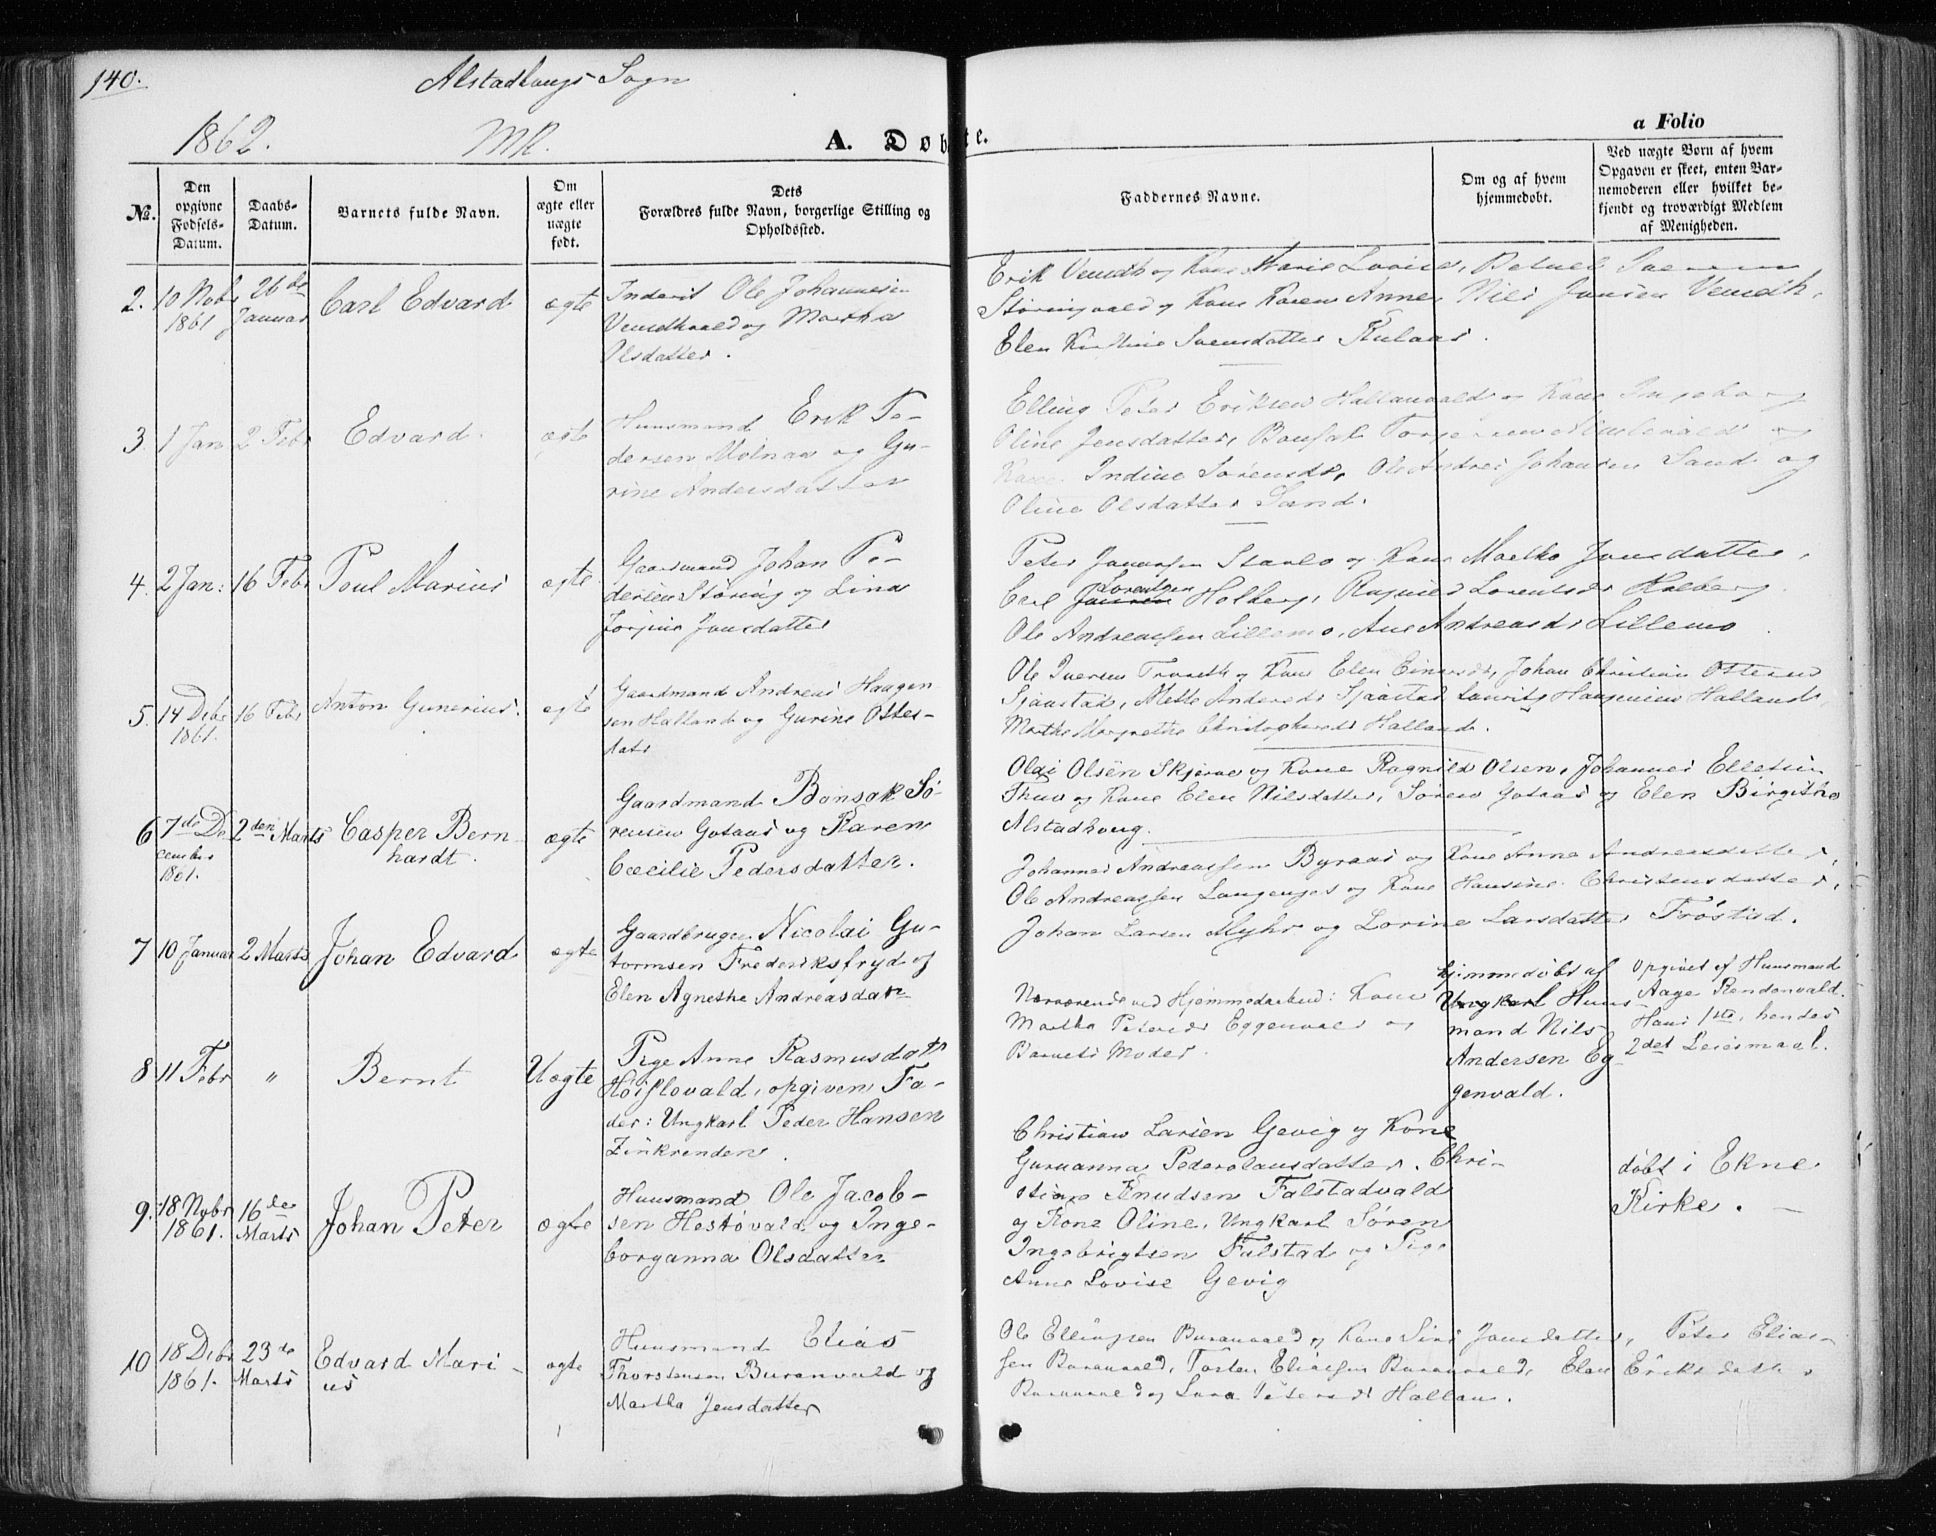 140.
Alstadhougs Sogn
1862.
MK.
A. Døbte.
a Folio
No.
Den opgivne Fødsels-Datum.
Daabs-Datum.
Barnets fulde Navn.
Om ægte eller uægte født.
Dets Forældres fulde Navn, borgerlige Stilling og Opholdssted.
Faddernes Navne.
Om og af hvem hjemmedøbt.
Ved uægte Børn af hvem Opgaven er skeet, enten Barnemoderen eller hvilket bekjendt og troværdigt Medlem af Menigheden.
2. 10 Nobr 1861
26de Januar
Carl Edvard
ægte
Inderst Ole Johannesen
og Martha
Olsdatter.
Erik og Kone Marie Lovise,
og Kone Karen Anne, Nils Jansen
Elen Svensdatter
3. 1 Jan
2 Febr
Edvard.
ægte
Huusmand Erik Pe-
dersen Molnaa og Gu-
rine Andersdatter
Elling Peter Eriksen og Kone Ingeborg
Oline Jensdatter,
Kone Indine Sørensdr, Ole Andreas Johansen Sand og
Oline Olsdatter Sand.
4. 2 Jan:
16 Febr
Poul Marius
ægte
Gaardmand Johan Pe-
dersen Støring og Lina
Jonsdatter
Peter og Kone Jonsdatter,
Carl Lorentsen Holberg, Ragnild Lorentsdr Holberg
Ole Andreassen Lillemo, Ane Andreasdr Lillemo
5. 14 Debr 1861.
16 Febr
Anton Gunerius.
ægte
Gaardmand Andreas Haagen-
sen Halland og Gurine Ottes-
datr
Ole Iversen og Kone Elen Einersdr, Johan Christian
Mette Andersdr Laurits Haagensen Halland,
Marthe Margrethe Christophersdr Halland.
6 7de December 1861.
2den Marts
Casper Bern-
hardt.
ægte
Gaardmand Bonsak Sø-
rensen Gotaas og Karen
Cæcilie Pedersdatter.
Olai Olsen Skjerve og Kone Ragnild Olsen, Johannes Ellefsen
og Kone Elen Nilsdatter, Søren Gotaas og Elen Birgitha
Alstadhoug.
7 10 Januar
2 Marts
Johan Edvard
ægte
Gaardbruger Nicolai Gu-
tormsen Frederiksfryd og
Elen Agnethe Andreasdatr
Johannes Andreassen Byraas og Kone Anne Andreasdatter,
Ole Andreassen Langenges og Kone Hansine Christensdatter,
Johan Larsen Myhr og Lorine Larsdatter Frøstad.
8 11 Febr
"
Bernt
Uægte
Pige Anne Rasmusdatr
opgiven Fa-
der: Ungkarl Peder Hansen
Zinkrenden.
Nærværende ved Hjemmedaaben: Kone
Martha Petersdr Eggenvald og
Barnets Moder.
hjemmedøbt af
Ungkarl Huus-
mand Nils
Andersen Eg-
genvald.
Opgivet af Huusmand
Aage Rendenvald.
Hans 1ste, hendes
2det Leiermaal.
9. 18 Nobr 1861.
16de Marts
Johan Peter
ægte
Huusmand Ole Jacob-
sen Hestøvald og Inge-
borganna Olsdatter
Christian Larsen Gevig og Kone
Guruanna Pederolausdatter. Chri-
stian Knudsen Falstadvald
og Kone Oline, Ungkarl Søren
Ingebrigtsen Falstad og Pige
Anne Lovise Gevig
døbt i Ekne
Kirke.
10 18 Debr 1861.
23de Marts
Edvard Mari-
us
ægte
Huusmand Elias
Thorstensen Buranvald og
Martha Jensdatter
Ole Ellingsen Buranvald og Kone Siri Jonsdatter, Peter Elias-
sen Buranvald, Torsten Eliassen Buranvald, Elen Eriksdatter
Buranvald og Petersdr Hallan.